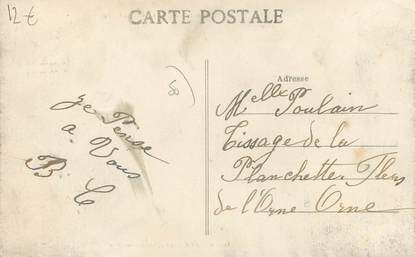 12€
CARTE POSTALE
58
Je Pense
a Vous
B C
Adresse
Melle Poulain
Tissage de la
Planchette Flers
de l'Orne Orne